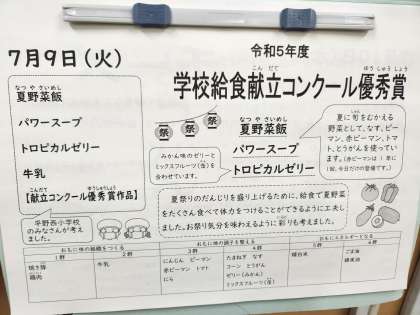 7月9日（火）
令和5年度
こんだて
ゆうしゅうしょう
学校給食献立コンクール優秀賞
なつ やさいめし
夏野菜飯
パワースープ
トロピカルゼリー
牛乳
こんだて
ゆうしゅうしょう
【献立コンクール優秀賞作品】
平野西小学校
のみなさんが考
えました。
祭 祭 祭
みかん味のゼリーと
ミックスフルーツ（缶）を
合わせています。
なつ やさいめし
夏野菜飯
パワースープ
トロピカルゼリー
しゅん
夏に旬をむかえる
野菜として、なす、ピー
マン、赤ピーマン、トマ
ト、とうがんを使ってい
ます。（赤ピーマンは1年に
1回、今日だけの登場です。）
夏祭りのだんじりを盛り上げるために、給食で夏野菜
をたくさん食べて体力をつけることができるように工夫し
ました。お祭り気分を味わえるように彩りも考えました。
おもに体の組織をつくる
おもに体の調子を整える
おもにエネルギーとなる
1群
2群
3群
4群
5群
6群
焼き豚
鶏肉
牛乳
にんじん ピーマン
赤ピーマン トマト
にら
たまねぎ なす
コーン とうがん
ゼリー（みかん）
ミックスフルーツ（缶）
精白米
ごま油